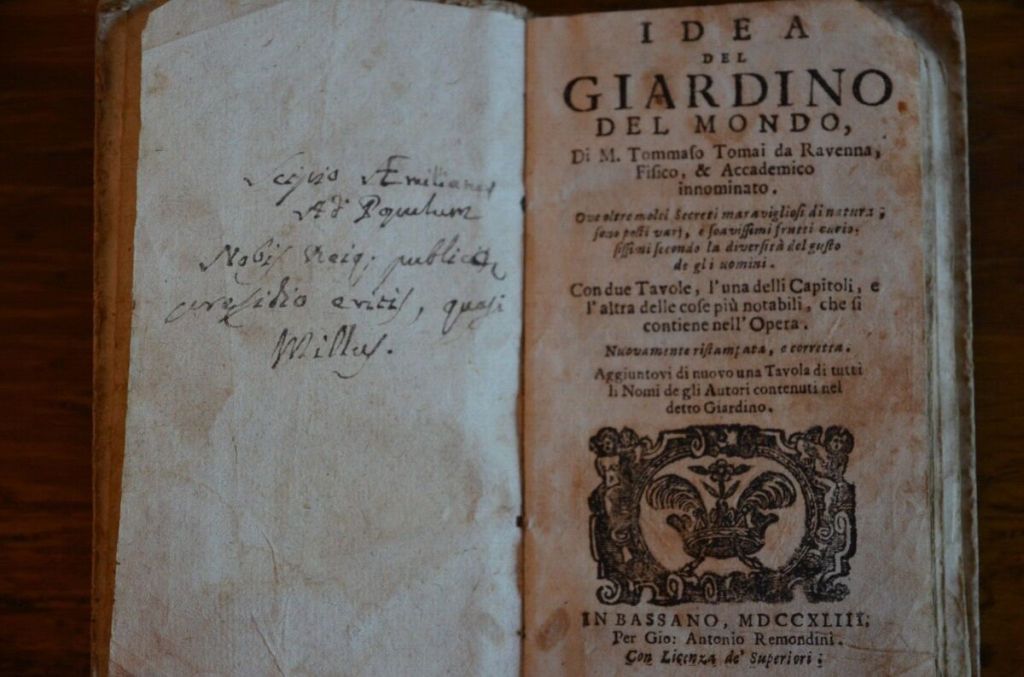 Scipio Æmilianus
Ad Populum
Nobis Reiq; publicæ
præsidio eritis, quasi
Milles.
IDEA
DEL
GIARDINO
DEL MONDO,
Di M. Tommaſo Tomai da Ravenna,
Fiſico, & Accademico
innominato.
Ove oltre molti Secreti maraviglioſi di natura;
ſono poſti varj, e ſoaviſſimi frutti curio-
ſiſſimi ſecondo la diverſità del guſto
de gli uomini.
Con due Tavole, l'una delli Capitoli, e
l'altra delle coſe più notabili, che ſi
contiene nell'Opera.
Nuovamente riſtampata, e corretta.
Aggiuntovi di nuovo una Tavola di tutti
li Nomi de gli Autori contenuti nel
detto Giardino.
IN BASSANO, MDCCXLIII;
Per Gio: Antonio Remondini.
Con Licenza de' Superiori;